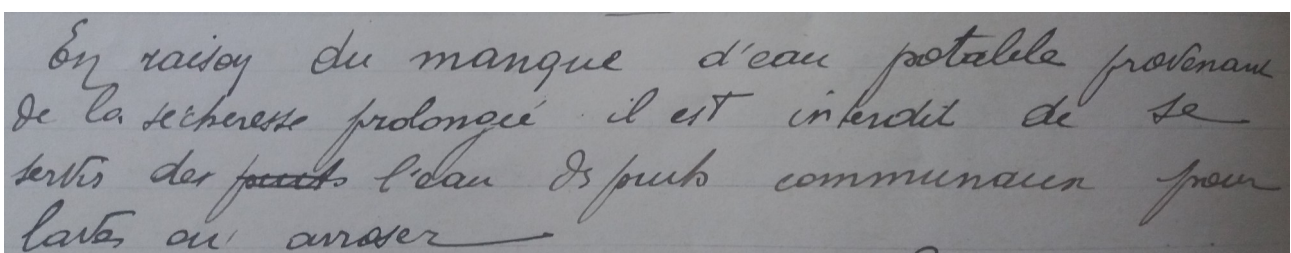 En raison du manque d'eau potable provenant
de la sécheresse prolongée il est interdit de se
servir des puits l'eau ds puits communaux pour
laver ou arroser